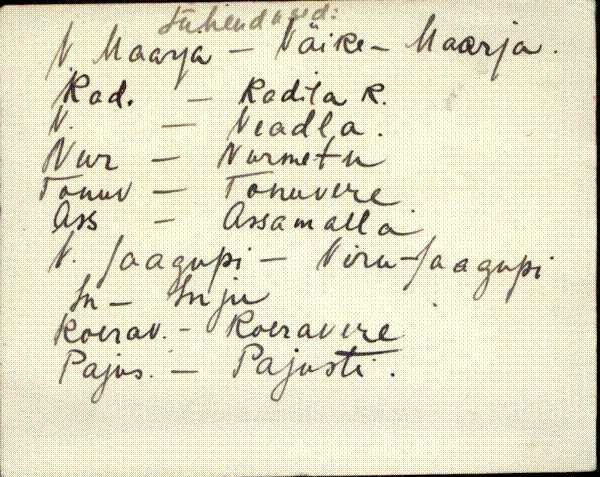 Lühendused:
V. Maarja – Väike-Maarja.
Rad. – Radila R.
V. – Veadla.
Nur – Nurmetu
Tonuv – Tonuvere
Ass – Assamalla
V. Jaagupi – Viru-Jaagupi
In – Inju
Koerav. – Koeravere
Pajus. – Pajusti.